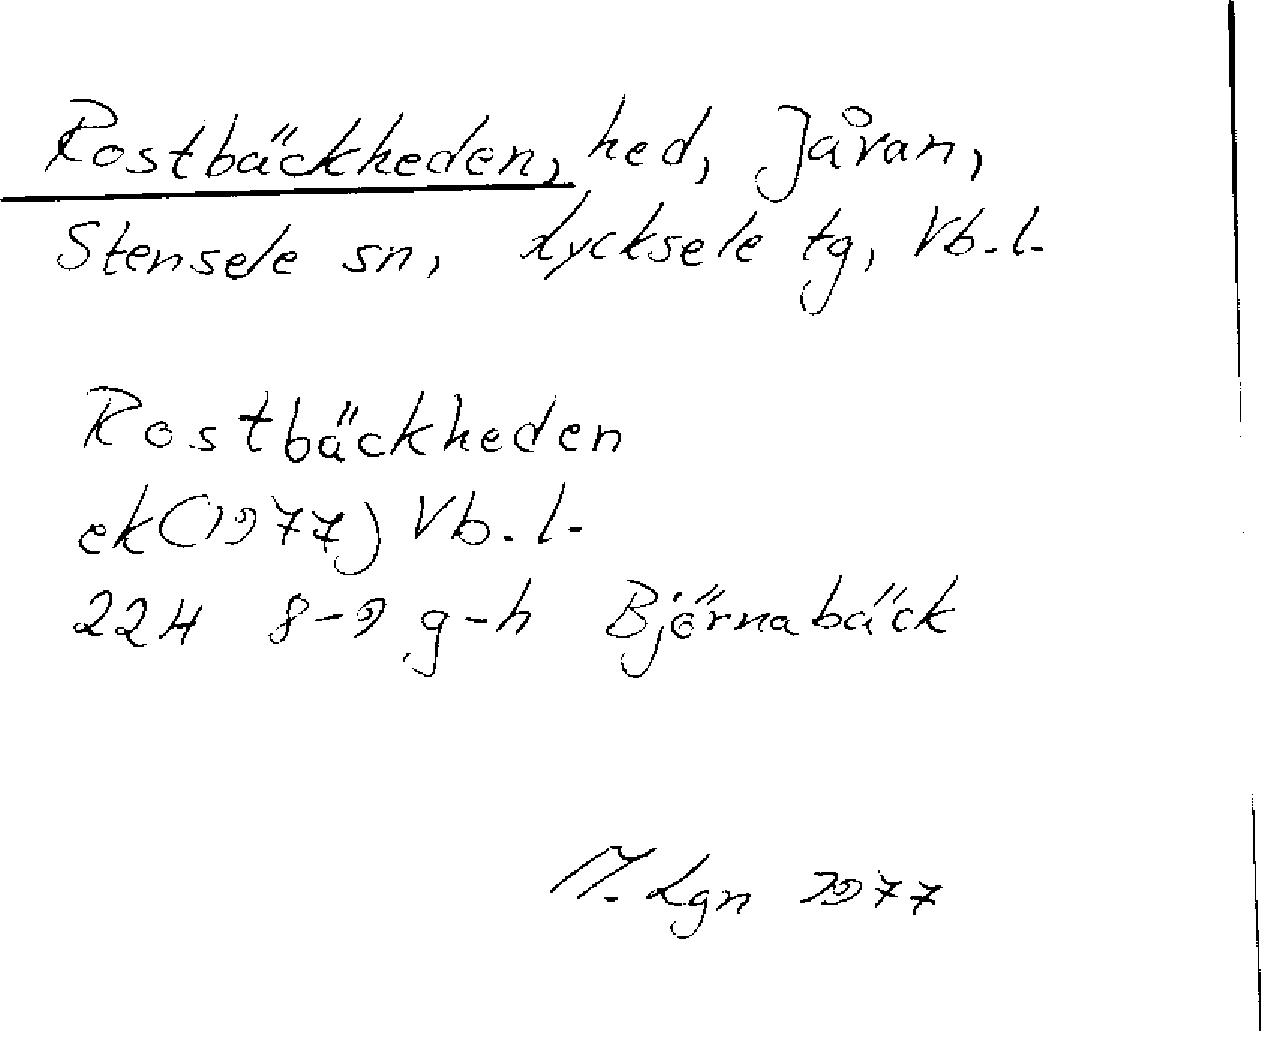 Rostbäckheden, hed, Jåran,
Stensele sn, Lycksele tg, Vb. l.
Rostbäckheden
ek (1977) Vb. l.
22H 8-9 g-h Björnabäck
M. Lgn 1977